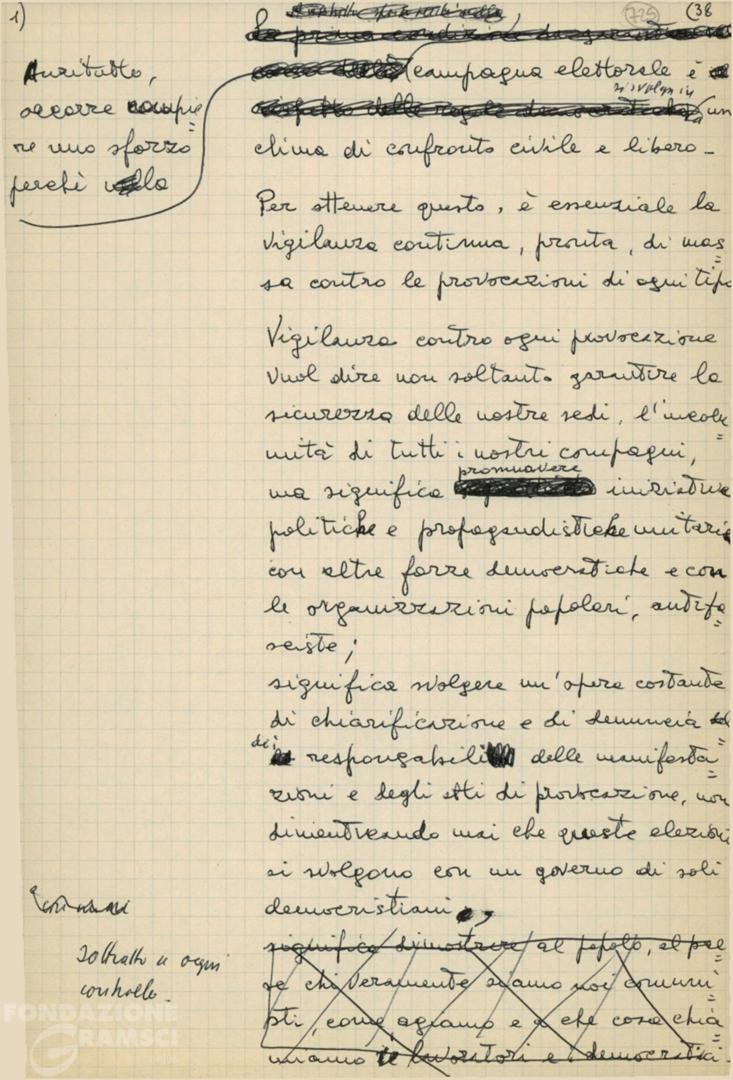 1)
725
(38
La prima condizione
Anzitutto,
occorre compie=
re uno sforzo
perché nella
campagna elettorale è
si svolga in
rispetto delle regole democratiche un
clima di confronto civile e libero -
Per ottenere questo, è essenziale la
vigilanza continua, pronta, di mas=
sa contro le provocazioni di ogni tipo
Vigilanza contro ogni provocazione
vuol dire non soltanto garantire la
sicurezza delle nostre sedi, l'incolu=
mità di tutti i nostri compagni,
promuovere
ma significa iniziative
politiche e propagandistiche unitarie
con altre forze democratiche e con
le organizzazioni popolari, antifa=
sciste;
significa svolgere un'opera costante
di chiarificazione e di denuncia
dei
responsabili delle manifesta=
zioni e degli atti di provocazione, non
dimenticando mai che queste elezioni
si svolgono con un governo di soli
democristiani,
sottratto a ogni
controllo -
significa dimostrare al popolo, al pae=
se chi veramente siamo noi comuni=
sti, come agiamo e a che cosa chia=
miamo i lavoratori e i democratici.
FONDAZIONE
GRAMSCI